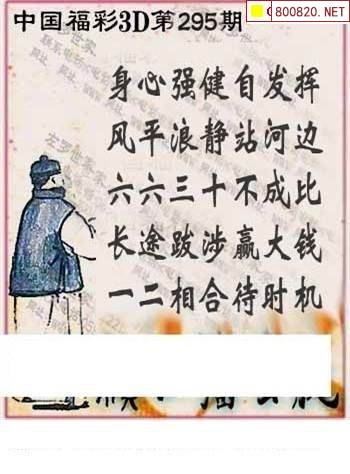 800820.NET
中国福彩3D第295期
身心强健自发挥
风平浪静站河边
六六三十不成比
长途跋涉赢大钱
一二相合待时机